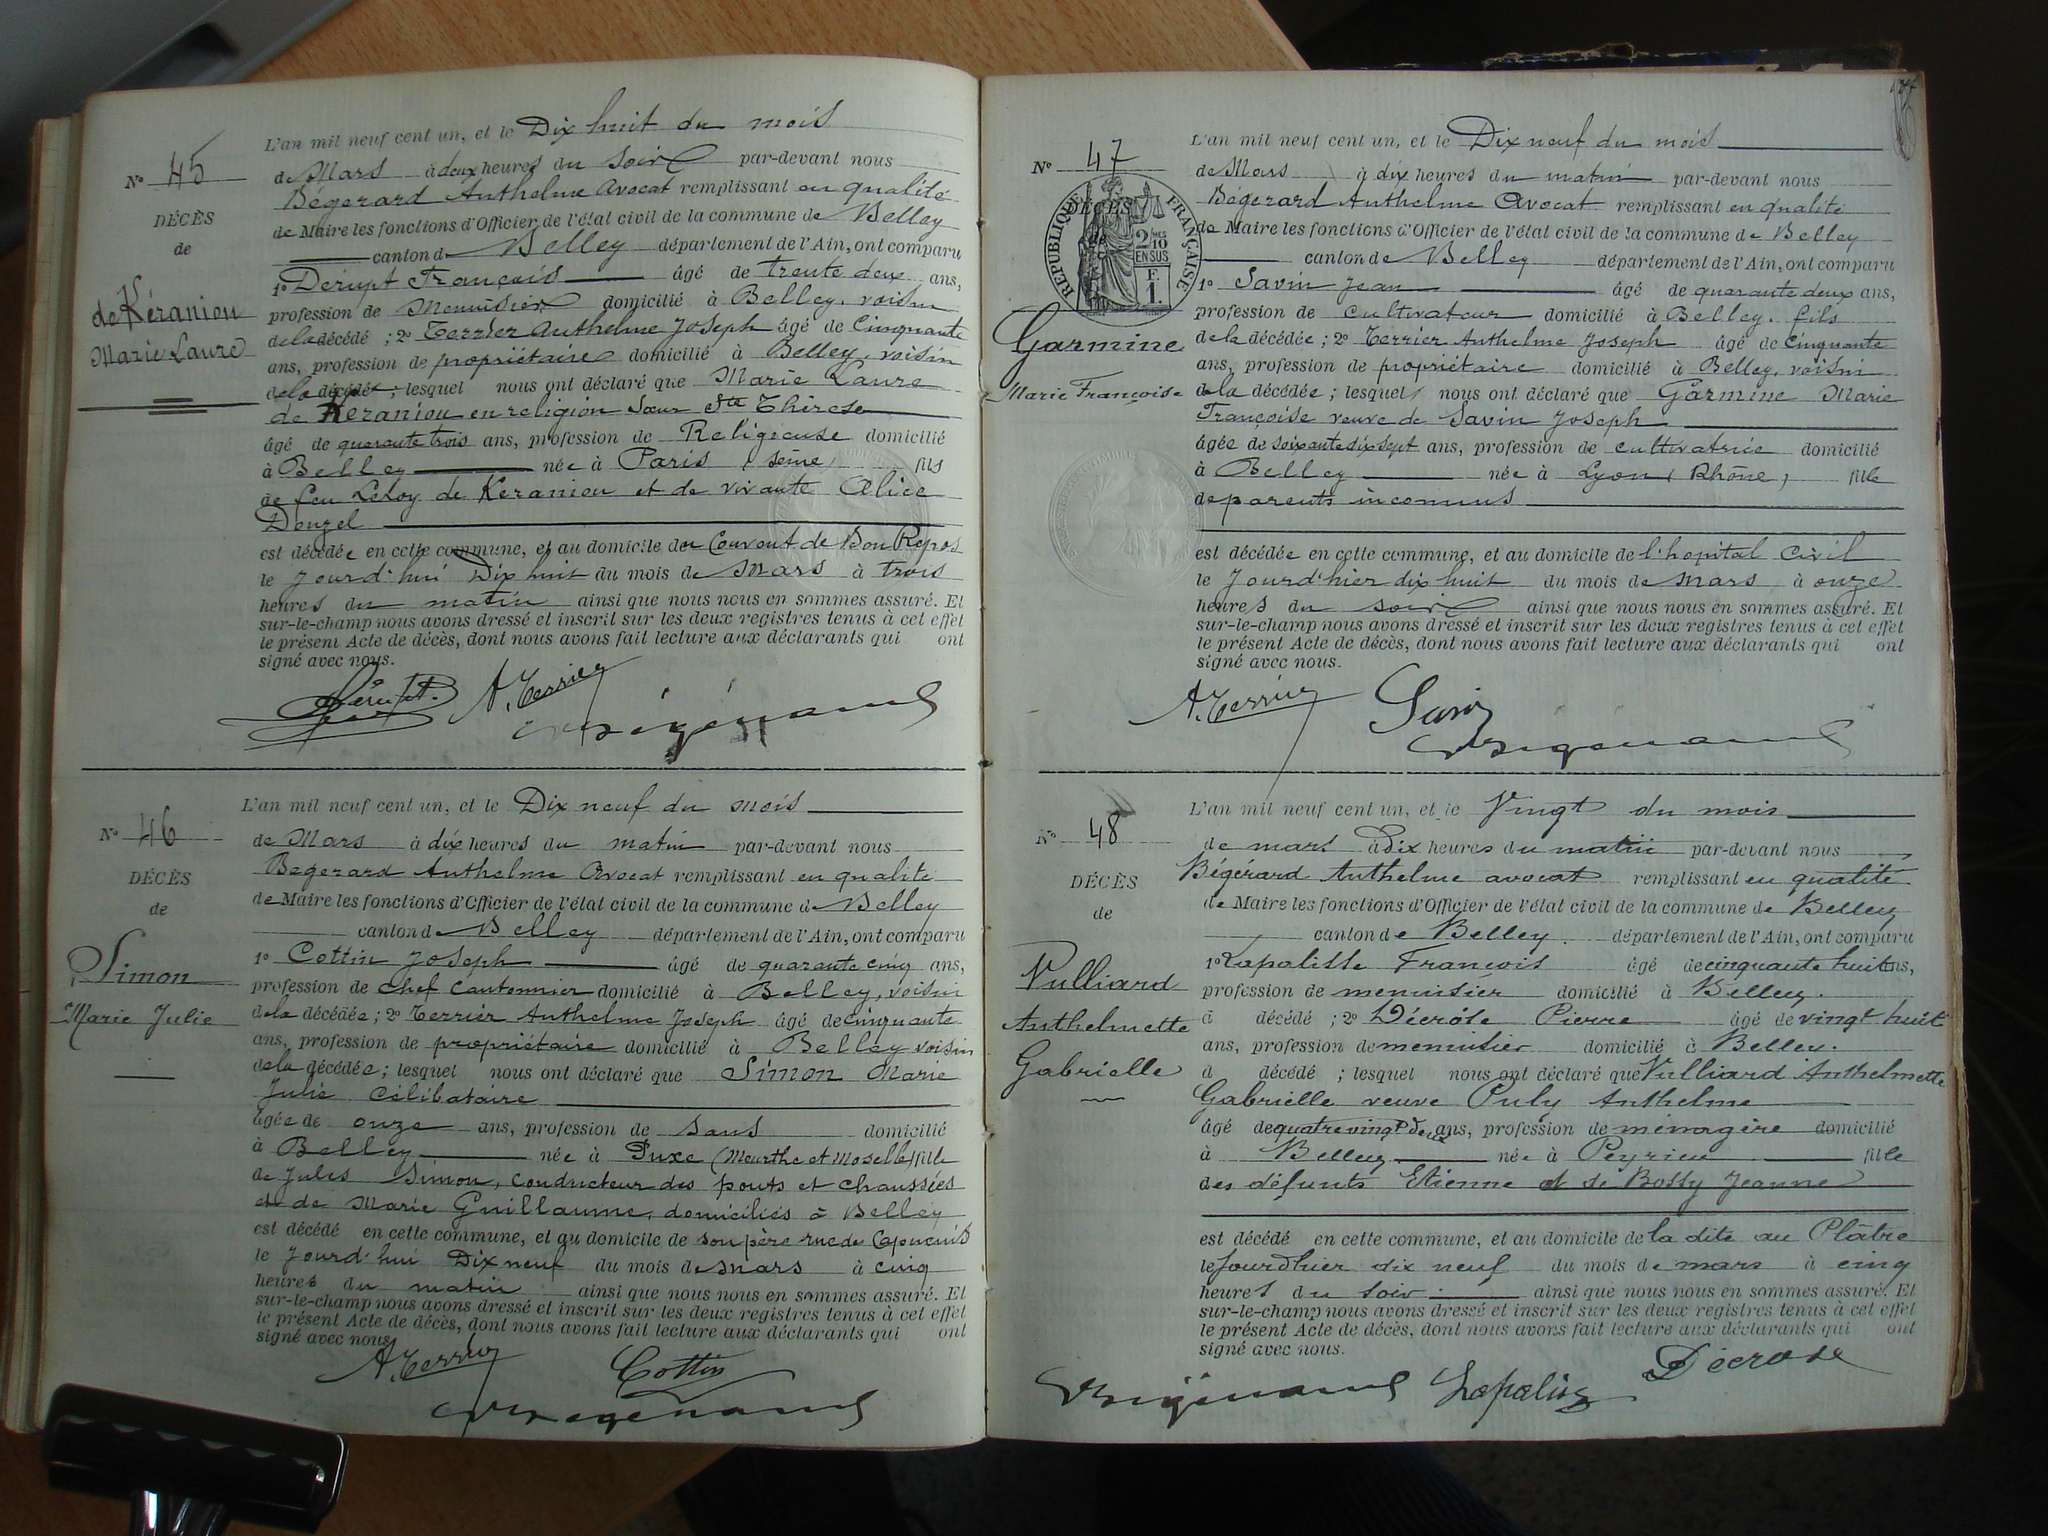 N° 45
DÉCÈS
de
de Kéraniou
Marie Laure
L'an mil neuf cent un, et le Dix huit du mois
de Mars à deux heures du soir par-devant nous
Bégerard Anthelme Avocat remplissant en qualité
de Maire les fonctions d'Officier de l'état civil de la commune de Belley
canton de Belley département de l'Ain, ont comparu
1° Derupt François âgé de trente deux ans,
profession de Menuisier domicilié à Belley, voisin
de la décédé ; 2° Terrier Anthelme Joseph âgé de Cinquante
ans, profession de propriétaire domicilié à Belley, voisin
de la décédée ; lesquel nous ont déclaré que Marie Laure
de Keraniou en religion Sœur Ste Thirese
âgé de quarante trois ans, profession de Religieuse domicilié
à Belley née à Paris (Seine) fils
de feu Leloy de Keraniou et de vivante Alice
Douzel
est décédée en cette commune, et au domicile du Couvent de Bon Repos
le Jourd'hui Dix huit du mois de Mars à trois
heures du matin ainsi que nous nous en sommes assuré. Et
sur-le-champ nous avons dressé et inscrit sur les deux registres tenus à cet effet
le présent Acte de décès, dont nous avons fait lecture aux déclarants qui ont
signé avec nous.
Dérupt. A. Terrier
N° 46
DÉCÈS
de
Simon
Marie Julie
L'an mil neuf cent un, et le Dix neuf du mois
de Mars à dix heures du matin par-devant nous
Begerard Anthelme Avocat remplissant en qualité
de Maire les fonctions d'Officier de l'état civil de la commune de Belley
canton de Belley département de l'Ain, ont comparu
1° Cottin Joseph âgé de quarante cinq ans,
profession de chef cantonnier domicilié à Belley, voisin
de la décédée ; 2° Terrier Anthelme Joseph âgé de cinquante
ans, profession de propriétaire domicilié à Belley voisin
de la décédée ; lesquel nous ont déclaré que Simon Marie
Julie Célibataire
âgée de onze ans, profession de sans domicilié
à Belley née à Puxe (Meurthe et Moselle) fille
de Jules Simon, conducteur des ponts et chaussées
et de Marie Guillaume, domiciliés à Belley
est décédé en cette commune, et au domicile de son père rue de Capucins
le Jourd'hui Dix neuf du mois de Mars à cinq
heures du matin ainsi que nous nous en sommes assuré. Et
sur-le-champ nous avons dressé et inscrit sur les deux registres tenus à cet effet
le présent Acte de décès, dont nous avons fait lecture aux déclarants qui ont
signé avec nous.
A. Terrier Cottin
N° 47
DÉCÈS
RÉPUBLIQUE FRANÇAISE
2 MES
10
EN SUS
F.
1.
Garmine
Marie Françoise
L'an mil neuf cent un, et le Dix neuf du mois
de Mars à dix heures du matin par-devant nous
Bégerard Anthelme Avocat remplissant en qualité
de Maire les fonctions d'Officier de l'état civil de la commune de Belley
canton de Belley département de l'Ain, ont comparu
1° Savin Jean âgé de quarante deux ans,
profession de cultivateur domicilié à Belley. fils
de la décédée ; 2° Terrier Anthelme Joseph âgé de Cinquante
ans, profession de propriétaire domicilié à Belley, voisin
de la décédée ; lesquel nous ont déclaré que Garmine Marie
Françoise veuve de Savin Joseph
âgée de soixante dix sept ans, profession de cultivatrice domicilié
à Belley née à Lyon (Rhône) fille
de parents inconnus
est décédée en cette commune, et au domicile de l'hopital Civil
le Jourd'hier dix huit du mois de Mars à onze
heures du soir ainsi que nous nous en sommes assuré. Et
sur-le-champ nous avons dressé et inscrit sur les deux registres tenus à cet effet
le présent Acte de décès, dont nous avons fait lecture aux déclarants qui ont
signé avec nous.
A. Terrier Savin
N° 48
DÉCÈS
de
Vulliard
Anthelmette
Gabrielle
L'an mil neuf cent un, et le Vingt du mois
de mars à Dix heures du matin par-devant nous
Bégérard Anthelme avocat remplissant en qualité
de Maire les fonctions d'Officier de l'état civil de la commune de Belley
canton de Belley. département de l'Ain, ont comparu
1° Lapalisse François âgé de cinquante huit ans,
profession de menuisier domicilié à Belley.
d décédé ; 2° Décrôse Pierre âgé de vingt huit
ans, profession de menuisier domicilié à Belley.
d décédé ; lesquel nous ont déclaré que Vulliard Anthelmette
Gabrielle veuve Puly Anthelme
âgé de quatre vingt deux ans, profession de ménagère domicilié
à Belley née à Peyrieu fille
des défunts Etienne et de Bossy Jeanne
est décédé en cette commune, et au domicile de la dite au Plâtre
le Jourdhier dix neuf du mois de mars à cinq
heures du soir ainsi que nous nous en sommes assuré. Et
sur-le-champ nous avons dressé et inscrit sur les deux registres tenus à cet effet
le présent Acte de décès, dont nous avons fait lecture aux déclarants qui ont
signé avec nous.
Lapalisse Décrose